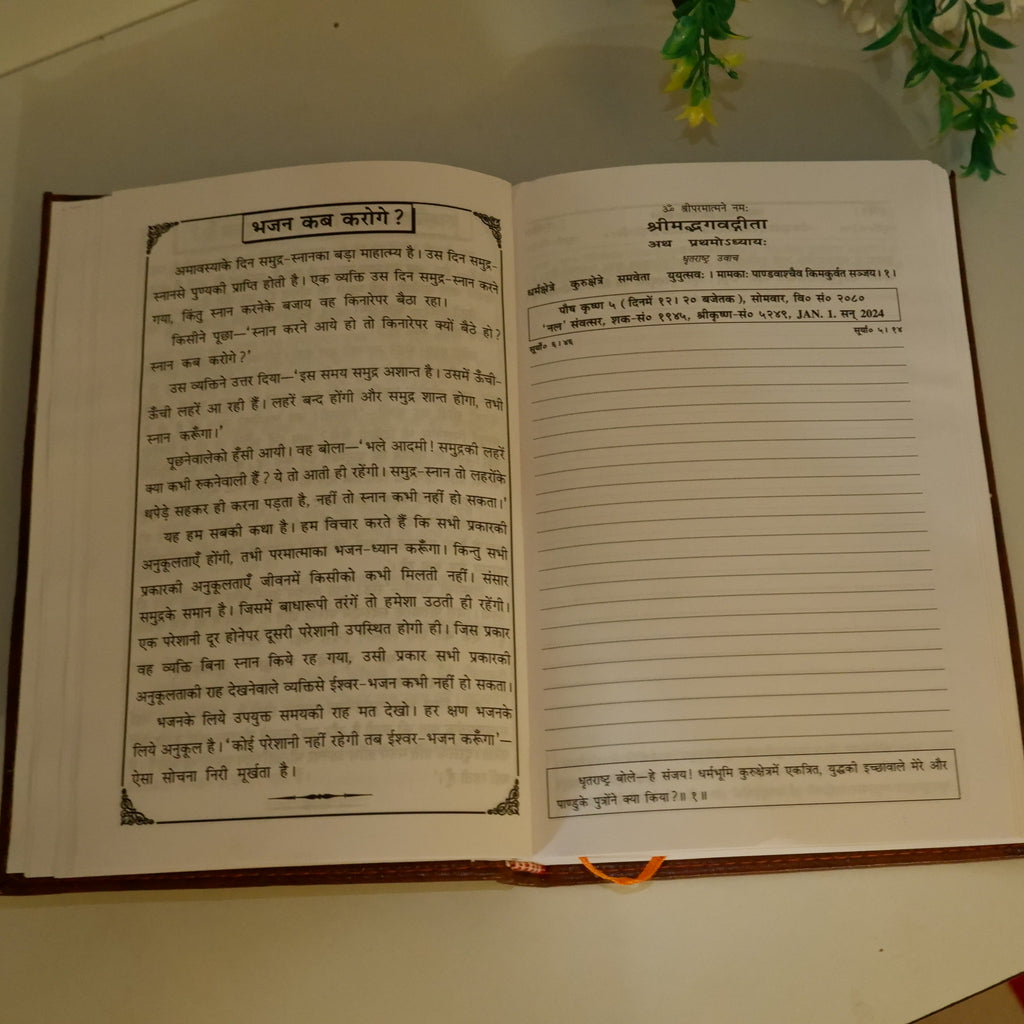 भजन कब करोगे ?
अमावस्याके दिन समुद्र-स्नानका बड़ा माहात्म्य है। उस दिन समुद्र-
स्नानसे पुण्यकी प्राप्ति होती है। एक व्यक्ति उस दिन समुद्र-स्नान करने
गया, किंतु स्नान करनेके बजाय वह किनारेपर बैठा रहा।
किसीने पूछा—‘स्नान करने आये हो तो किनारेपर क्यों बैठे हो?
स्नान कब करोगे?’
उस व्यक्तिने उत्तर दिया—‘इस समय समुद्र अशान्त है। उसमें ऊँची-
ऊँची लहरें आ रही हैं। लहरें बन्द होंगी और समुद्र शान्त होगा, तभी
स्नान करूँगा।’
पूछनेवालेको हँसी आयी। वह बोला—‘भले आदमी! समुद्रकी लहरें
क्या कभी रुकनेवाली हैं? ये तो आती ही रहेंगी। समुद्र-स्नान तो लहरोंके
थपेड़े सहकर ही करना पड़ता है, नहीं तो स्नान कभी नहीं हो सकता।’
यह हम सबकी कथा है। हम विचार करते हैं कि सभी प्रकारकी
अनुकूलताएँ होंगी, तभी परमात्माका भजन-ध्यान करूँगा। किन्तु सभी
प्रकारकी अनुकूलताएँ जीवनमें किसीको कभी मिलती नहीं। संसार
समुद्रके समान है। जिसमें बाधारूपी तरंगें तो हमेशा उठती ही रहेंगी।
एक परेशानी दूर होनेपर दूसरी परेशानी उपस्थित होगी ही। जिस प्रकार
वह व्यक्ति बिना स्नान किये रह गया, उसी प्रकार सभी प्रकारकी
अनुकूलताकी राह देखनेवाले व्यक्तिसे ईश्वर-भजन कभी नहीं हो सकता।
भजनके लिये उपयुक्त समयकी राह मत देखो। हर क्षण भजनके
लिये अनुकूल है। ‘कोई परेशानी नहीं रहेगी तब ईश्वर-भजन करूँगा’—
ऐसा सोचना निरी मूर्खता है।
ॐ श्रीपरमात्मने नमः
श्रीमद्भगवद्गीता
अथ प्रथमोऽध्यायः
धृतराष्ट्र उवाच
धर्मक्षेत्रे कुरुक्षेत्रे समवेता युयुत्सवः। मामकाः पाण्डवाश्चैव किमकुर्वत सञ्जय। १।
पौष कृष्ण ५ (दिनमें १२। २० बजेतक), सोमवार, वि० सं० २०८०
‘नल’ संवत्सर, शक-सं० १९४५, श्रीकृष्ण-सं० ५२४९, JAN. 1. सन् 2024
सूर्यो० ६।४६ सूर्या० ५।१४
धृतराष्ट्र बोले—हे संजय! धर्मभूमि कुरुक्षेत्रमें एकत्रित, युद्धकी इच्छावाले मेरे और
पाण्डुके पुत्रोंने क्या किया?॥ १॥